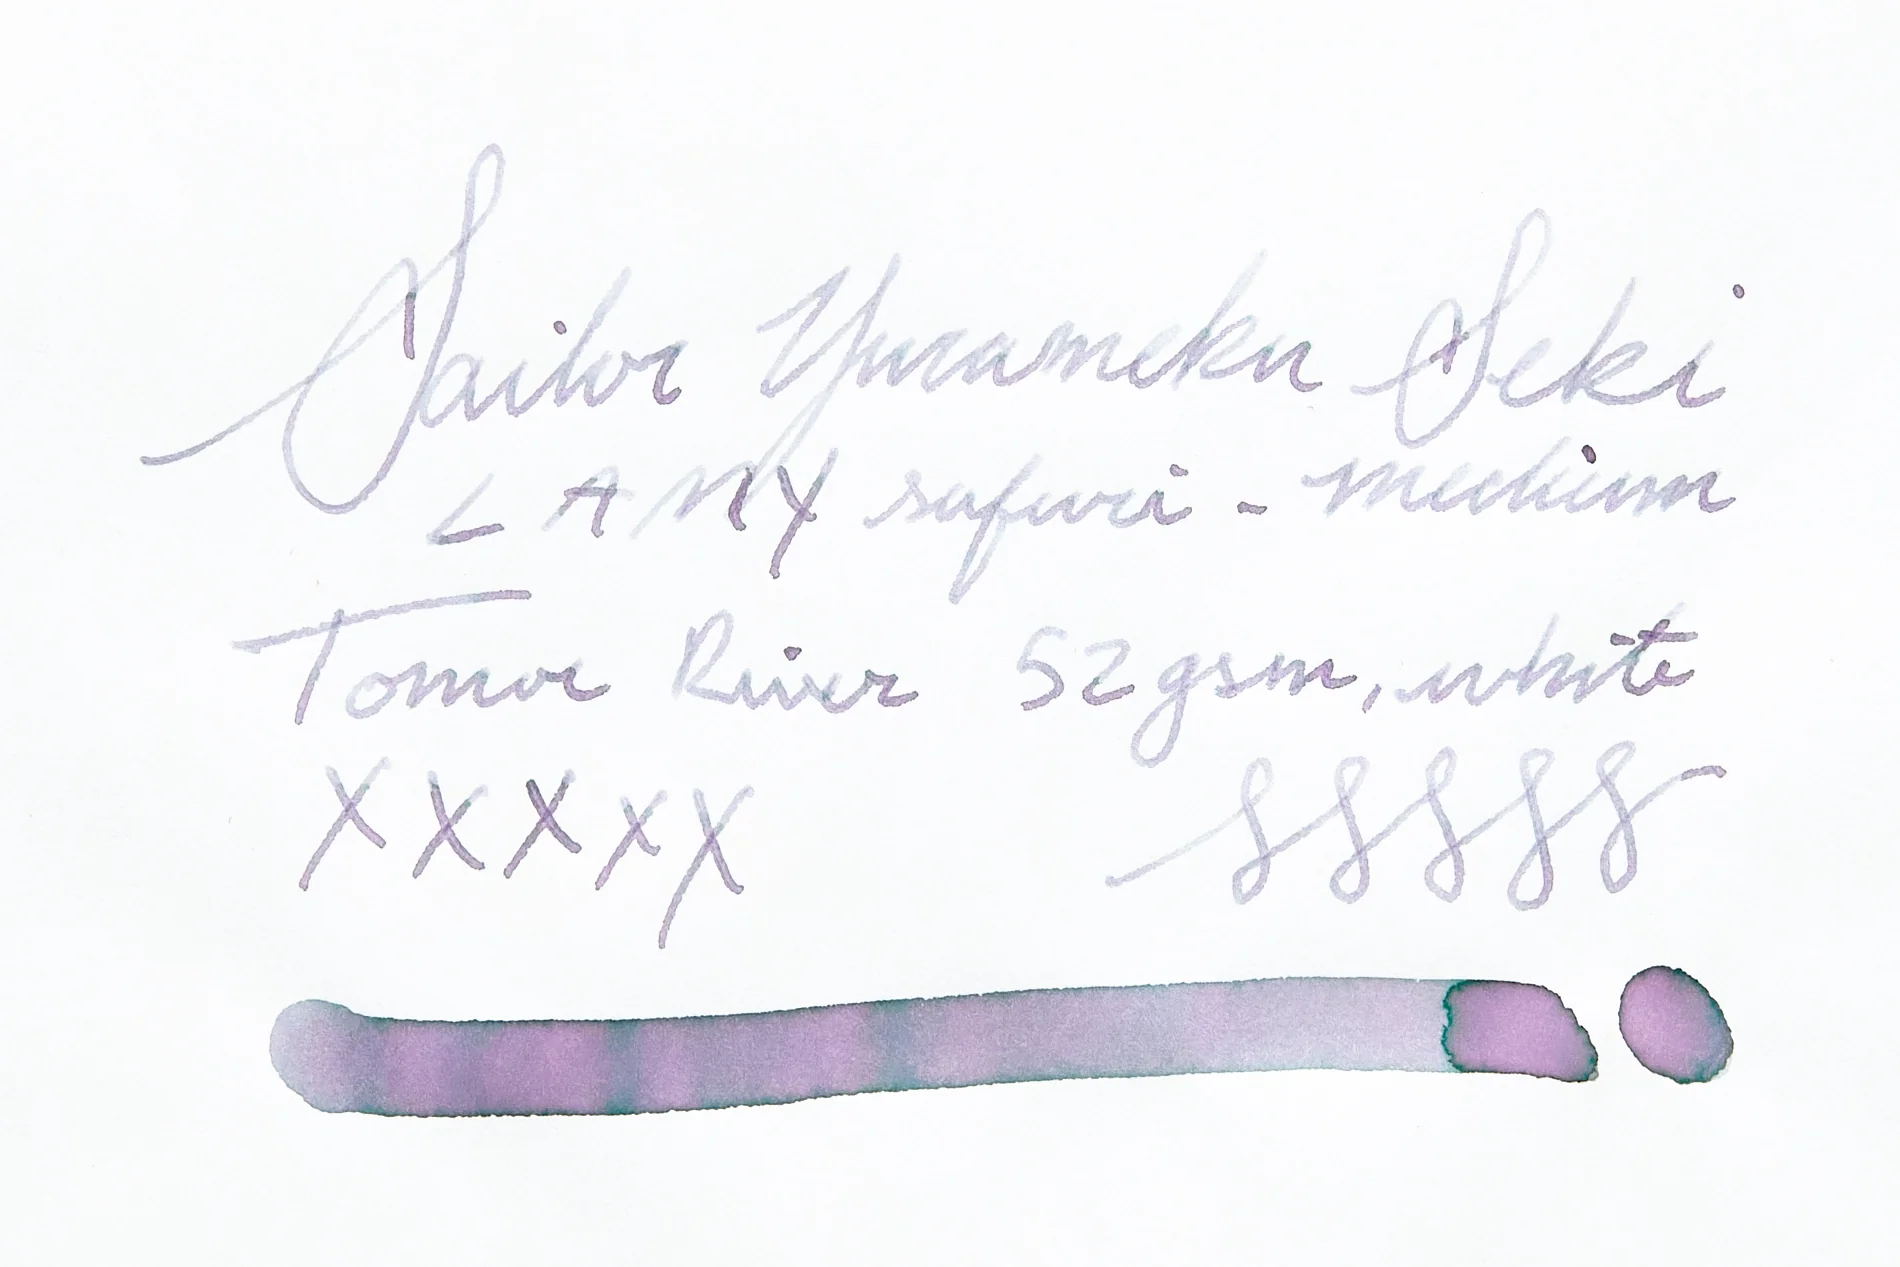 Sailor Yurameku Seki
LAMY safari - medium
Tomoe River 52gsm, white
XXXXX